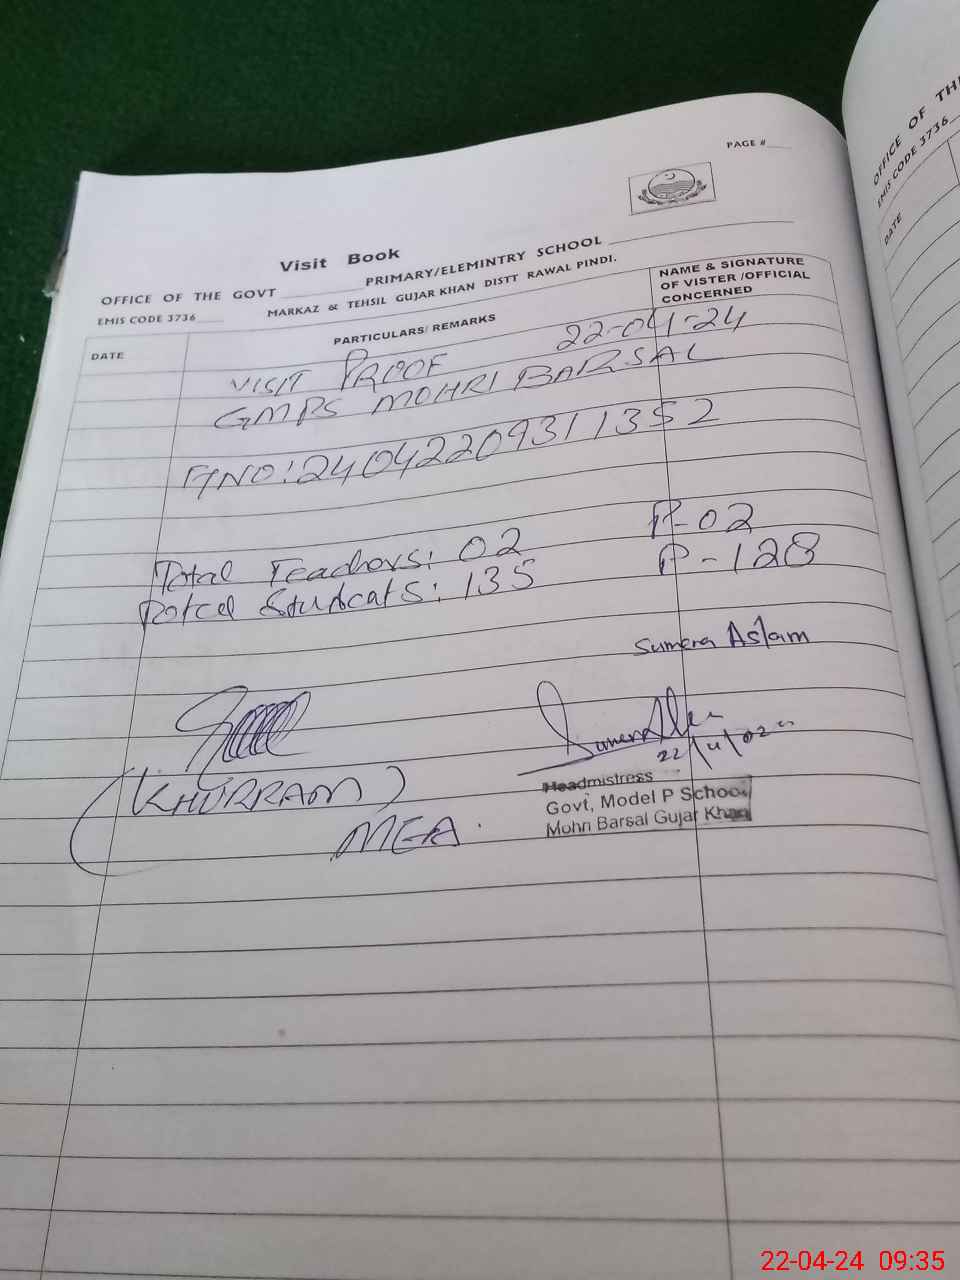 PAGE #
Visit Book
OFFICE OF THE GOVT PRIMARY/ELEMINTRY SCHOOL
EMIS CODE 3736 MARKAZ & TEHSIL GUJAR KHAN DISTT RAWAL PINDI.
DATE PARTICULARS/ REMARKS NAME & SIGNATURE OF VISTER /OFFICIAL CONCERNED
VISIT PROOF 22-04-24
GMPS MOHRI BARSAL
240422093111352
Total Teachers: 02 P-02
Total Students: 135 P-128
Sumera Aslam
(KHURRAM)
MEA.
Headmistress
Govt, Model P School
Mohri Barsal Gujar Khan
OFFICE OF THE
EMIS CODE 3736
DATE
22-04-24 09:35